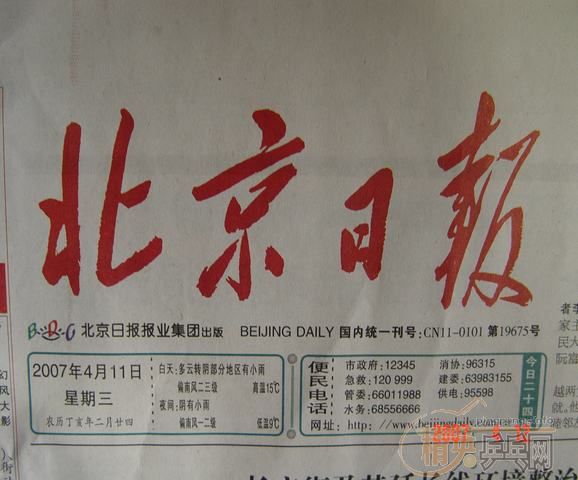 北京日报
北京日报报业集团出版 BEIJING DAILY 国内统一刊号:CN11-0101 第19675号
2007年4月11日
星期三
农历丁亥年二月廿四
白天:多云转阴部分地区有小雨
偏南风二三级 高温15℃
夜间:阴有小雨
偏南风一二级 低温9℃
便民电话
市政府:12345 消协:96315
急救:120 999 建委:63983155
管委:66011988 供电:95598
水务:68556666
网址:http://www.beijingdaily.
今日二十四